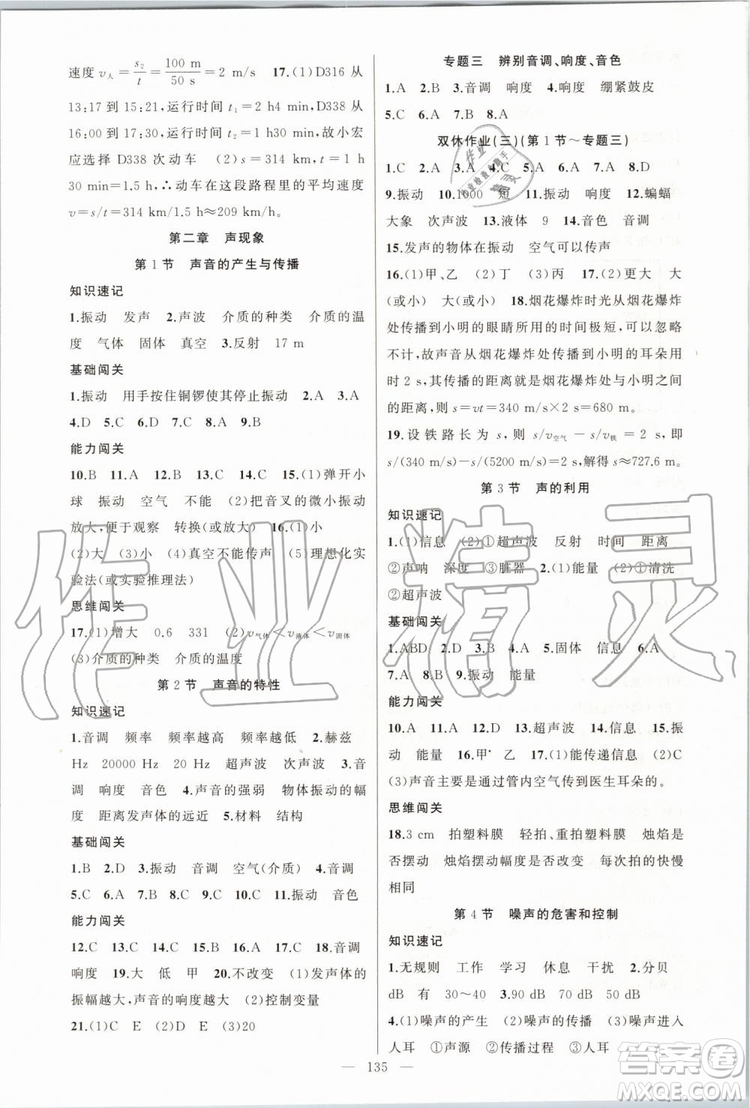 速度 v人 = s2/t = 100 m/50 s 17.(1)D316 从
13:17 到 15:21,运行时间 t1=2 h4 min,D338 从
16:00 到 17:30,运行时间 t2=1 h 30 min,故小宏
应选择 D338 次动车 (2)s=314 km t=1 h
30 min=1.5 h∴动车在这段路程里的平均速度
v=s/t=314 km/1.5 h≈209 km/h.
第二章 声现象
第 1 节 声音的产生与传播
知识速记
1.振动 发声 2.声波 介质的种类 介质的温
度 气体 固体 真空 3.反射 17 m
基础闯关
1.振动 用手按住铜锣使其停止振动 2.A 3.A
4.D 5.C 6.B 7.C 8.A 9.B
能力闯关
10.B 11.A 12.A 13.B 14.B 15.(1)弹开小
球 振动 空气 不能 (2)把音叉的微小振动
放大,便于观察 转换(或放大) 16.(1)小
(2)大 (3)小 (4)真空不能传声 (5)理想化实
验法(或实验推理法)
思维闯关
17.(1)增大 0.6 331 (2)v气体<v液体<v固体
(3)介质的种类 介质的温度
第 2 节 声音的特性
知识速记
1.音调 频率 频率越高 频率越低 2.赫兹
Hz 20000 Hz 20 Hz 超声波 次声波 3.音
调 响度 音色 4.声音的强弱 物体振动的幅
度 距离发声体的远近 5.材料 结构
基础闯关
1.B 2.D 3.振动 音调 空气(介质) 4.音调
5.C 6.C 7.A 8.A 9.B 10.C 11.振动 音色
能力闯关
12.C 13.A 14.C 15.C 16.B 17.A 18.音调
响度 19.大 低 甲 20.不改变 (1)发声体的
振幅越大,声音的响度越大 (2)控制变量
21.(1)D E (2)C D E (3)20
专题三 辨别音调、响度、音色
1.A 2.B 3.音调 响度 4.音调 响度 绷紧鼓皮
5.C 6.A 7.B 8.A
双休作业(三)(第 1 节~专题三)
1.C 2.C 3.A 4.B 5.A 6.C 7.B 8.D
9.振动 10.1000 短 11.振动 响度 12.蝙蝠
大象 次声波 13.液体 9 14.音色 音调
15.发声的物体在振动 空气可以传声
16.(1)甲、乙 (2)(3)丙 17.(2)更大 大
(或小) 大(或小) 18.烟花爆炸时光从烟花爆炸
处传播到小明的眼睛所用的时间极短,可以忽略
不计,故声音从烟花爆炸处传播到小明的耳朵用
时 2 s,其传播的距离即为烟花爆炸处与小明之间
的距离,则 s=vt=340 m/s×2 s=680 m.
19.设铁路长为 s,则 s/v空气-s/v铁=2 s,即
s/(340 m/s)-s/(5200 m/s)=2 s,解得 s≈727.6 m.
第 3 节 声的利用
知识速记
1.(1)信息 (2)①超声波 反射 时间 距离
②声呐 深度 ③脏器 2.(1)能量 (2)①清洗
②超声波
基础闯关
1.ABD 2.D 3.B 4.B 5.固体 信息 6.C
7.C 8.D 9.振动 能量
能力闯关
10.A 11.C 12.A 13.超声波 14.信息 15.振
动 能量 16.甲 乙 17.(1)能传递信息 (2)C
(3)声音主要是通过管内空气传到医生耳朵的.
思维闯关
18.3 cm 拍塑料膜 轻拍、重拍塑料膜 烛焰是
否摆动 烛焰摆动幅度是否改变 每次拍的快慢
相同
第 4 节 噪声的危害和控制
知识速记
1.无规则 工作 学习 休息 干扰 2.分贝
dB 有 30~40 3.90 70 50 dB dB dB
4.(1)噪声的产生 (2)噪声的传播 (3)噪声进入
人耳 ①声源 ②传播过程 ③人耳
135
作业精灵
答案圈
MXQE.COM